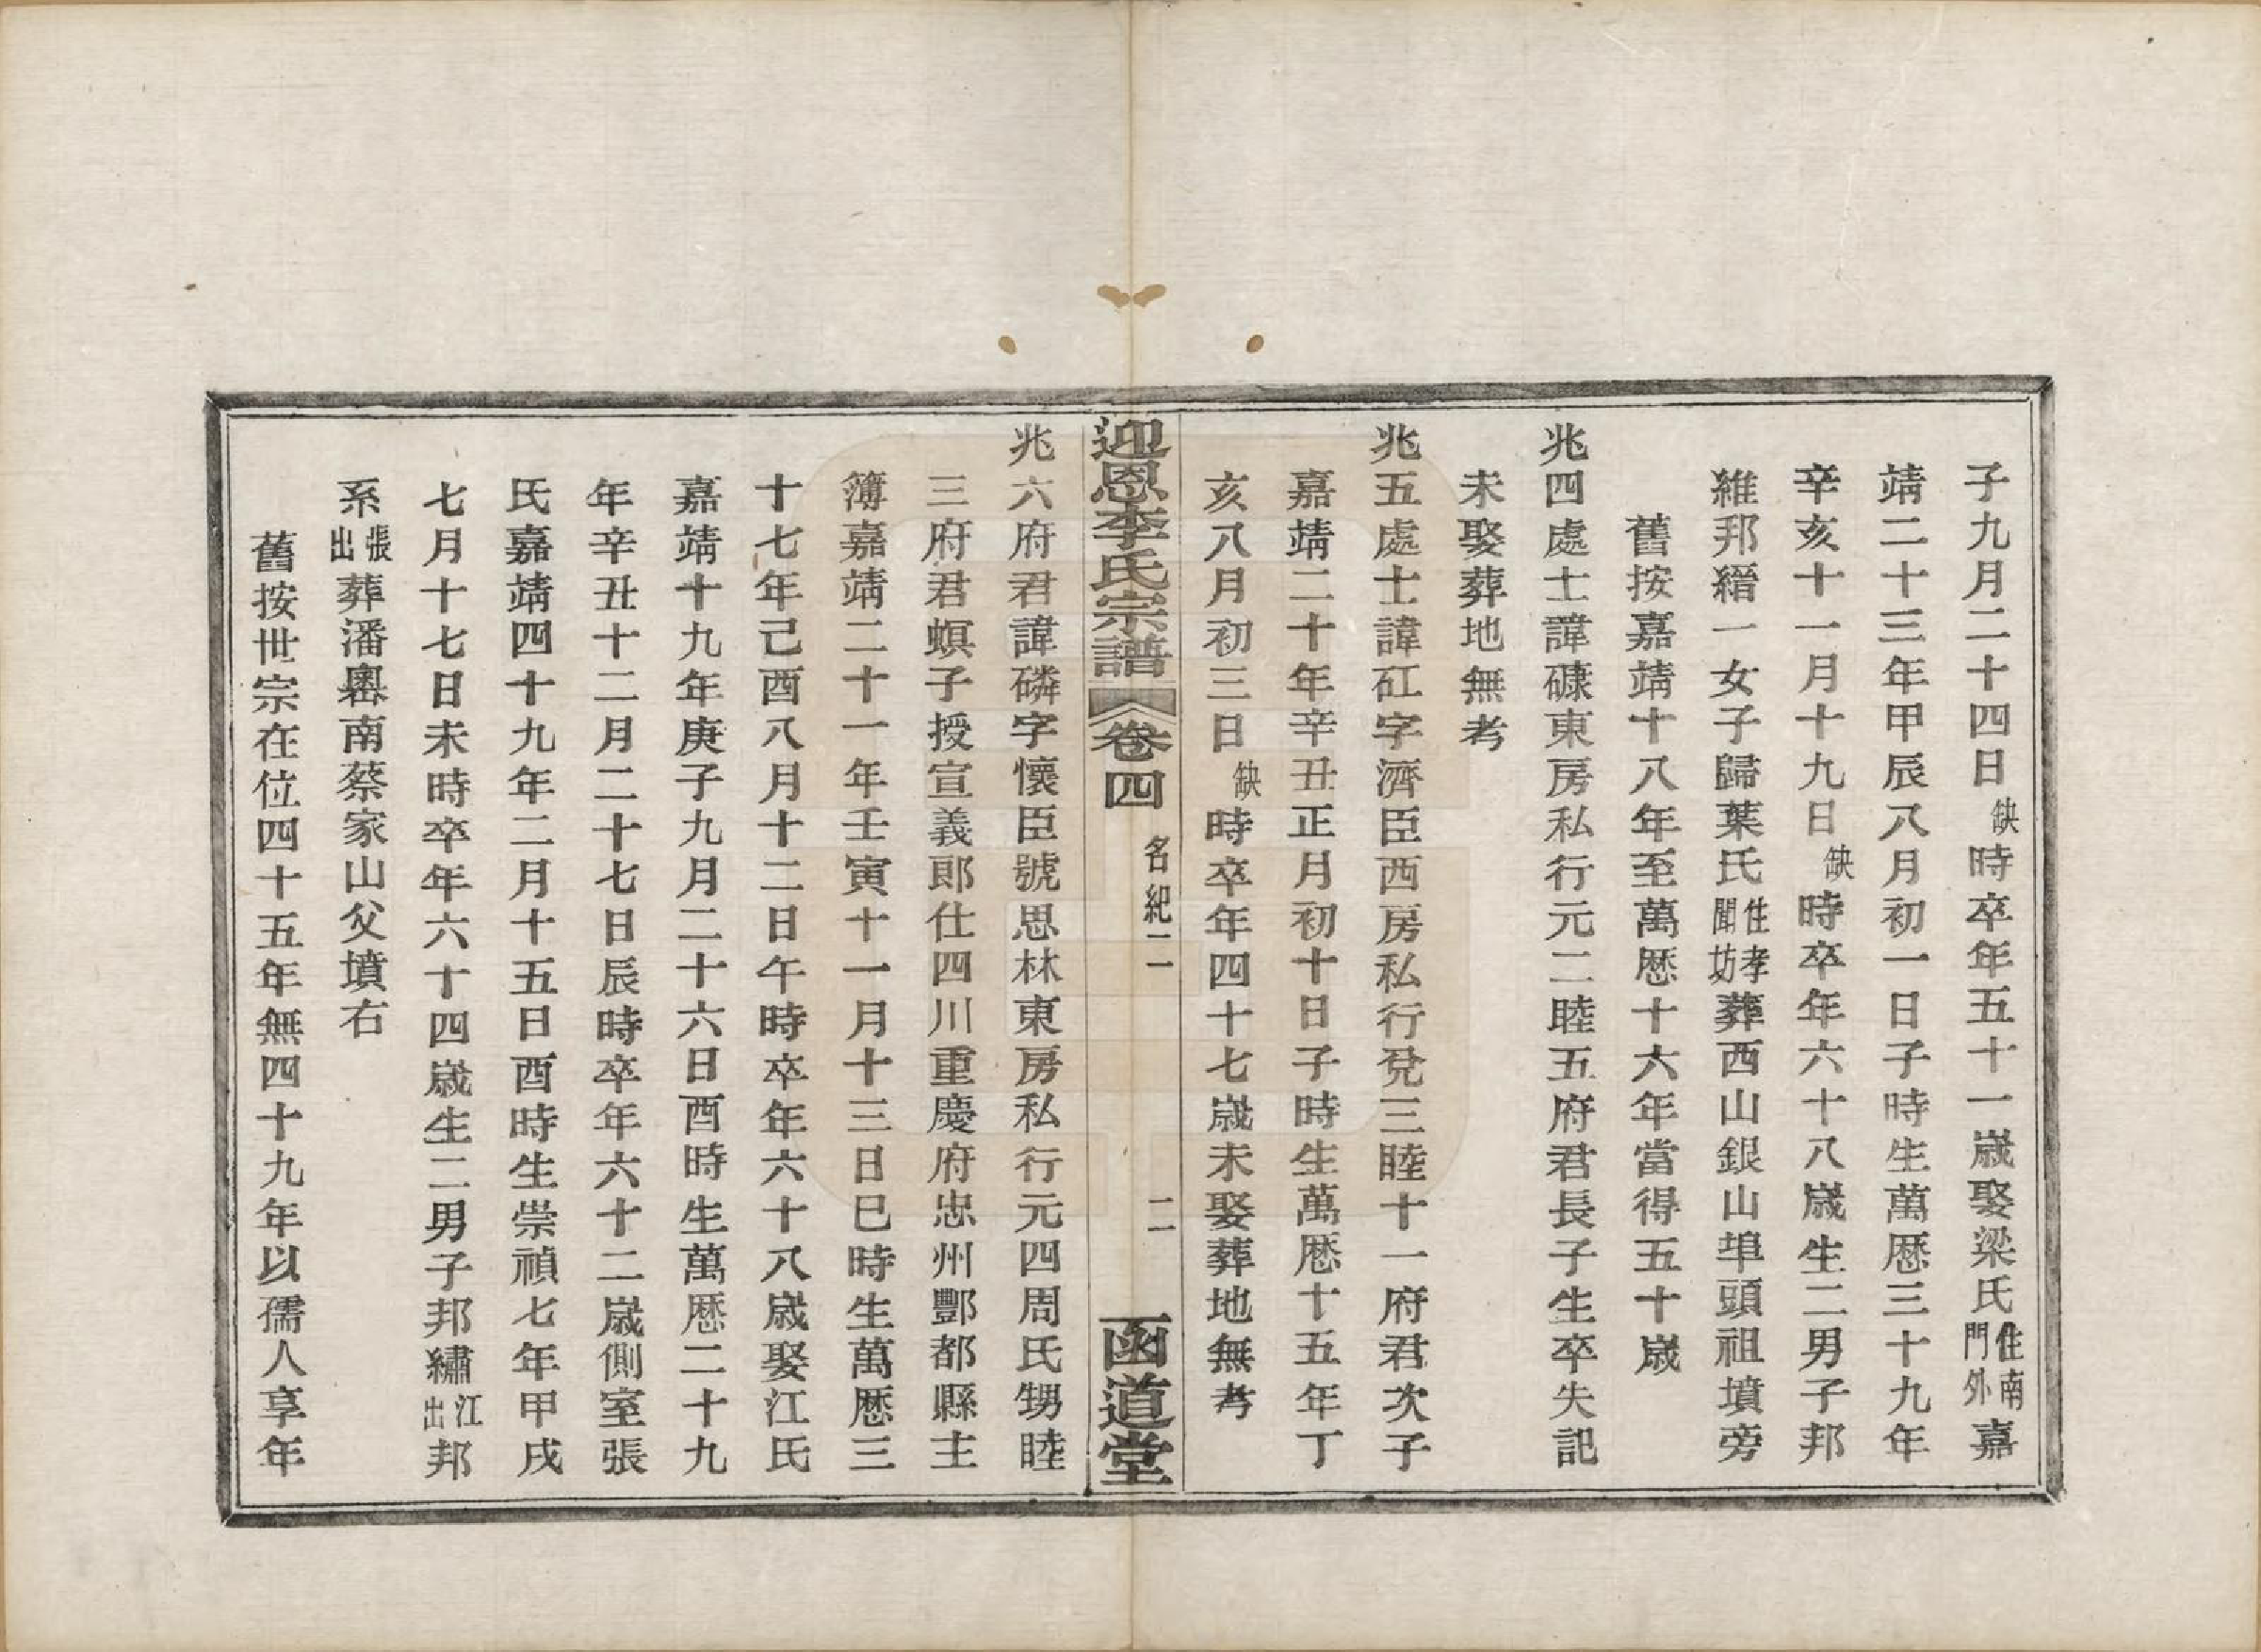 子九月二十四日缺時卒年五十一歲娶梁氏住南門外嘉
靖二十三年甲辰八月初一日子時生萬歷三十九年
辛亥十一月十九日缺時卒年六十八歲生二男子邦
維邦縉一女子歸葉氏住孝聞坊葬西山銀山埠頭祖墳旁
舊按嘉靖十八年至萬歷十六年當得五十歲
兆四處士諱磏東房私行元二睦五府君長子生卒失記
未娶葬地無考
兆五處士諱矼字濟臣西房私行兌三睦十一府君次子
嘉靖二十年辛丑正月初十日子時生萬歷十五年丁
亥八月初三日缺時卒年四十七歲未娶葬地無考
迎恩李氏宗譜 卷四 名紀二 二 函道堂
兆六府君諱磷字懷臣號思林東房私行元四周氏甥睦
三府君螟子授宣義郎仕四川重慶府忠州酆都縣主
簿嘉靖二十一年壬寅十一月十三日巳時生萬歷三
十七年己酉八月十二日午時卒年六十八歲娶江氏
嘉靖十九年庚子九月二十六日酉時生萬歷二十九
年辛丑十二月二十七日辰時卒年六十二歲側室張
氏嘉靖四十九年二月十五日酉時生崇禎七年甲戌
七月十七日未時卒年六十四歲生二男子邦繡江出邦
系張出葬潘嶴南蔡家山父墳右
舊按世宗在位四十五年無四十九年以孺人享年